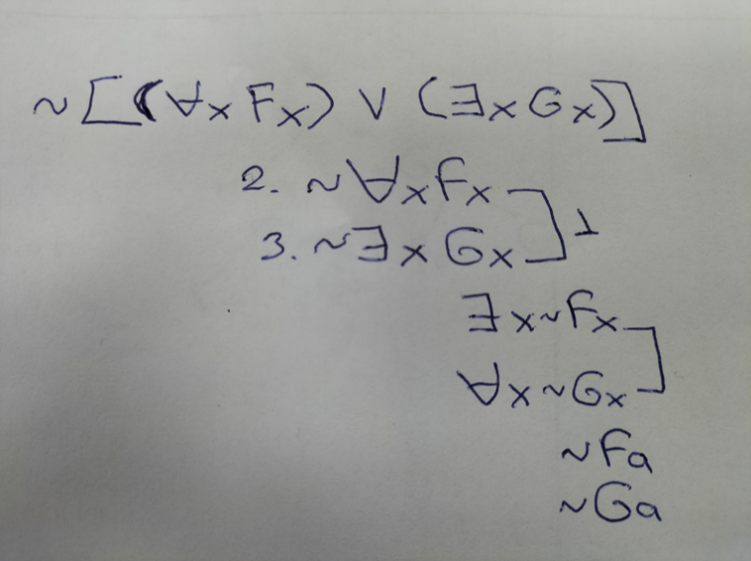 ~[(∀x Fx) ∨ (∃x Gx)]
2. ~∀xFx
3. ~∃x Gx
1
∃x~Fx
∀x~Gx
~Fa
~Ga